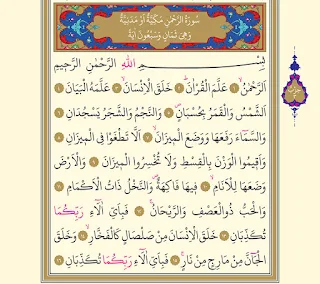 سُورَةُ الرَّحْمٰنِ مَكِّيَّةٌ اَوْ مَدَنِيَّةٌ
وَهِىَ ثَمَانٍ وَسَبْعُونَ اٰيَةً
بِسْمِ اللّٰهِ الرَّحْمٰنِ الرَّحٖيمِ
اَلرَّحْمٰنُ ﴿١﴾ عَلَّمَ الْقُرْاٰنَ ﴿٢﴾ خَلَقَ الْاِنْسَانَ ﴿٣﴾ عَلَّمَهُ الْبَيَانَ ﴿٤﴾
اَلشَّمْسُ وَالْقَمَرُ بِحُسْبَانٍ ﴿٥﴾ وَالنَّجْمُ وَالشَّجَرُ يَسْجُدَانِ ﴿٦﴾
وَالسَّمَٓاءَ رَفَعَهَا وَوَضَعَ الْمٖيزَانَ ﴿٧﴾ اَلَّا تَطْغَوْا فِى الْمٖيزَانِ ﴿٨﴾
وَاَقٖيمُوا الْوَزْنَ بِالْقِسْطِ وَلَا تُخْسِرُوا الْمٖيزَانَ ﴿٩﴾ وَالْاَرْضَ
وَضَعَهَا لِلْاَنَامِ ﴿١٠﴾ فٖيهَا فَاكِهَةٌ وَالنَّخْلُ ذَاتُ الْاَكْمَامِ ﴿١١﴾
وَالْحَبُّ ذُوالْعَصْفِ وَالرَّيْحَانُ ﴿١٢﴾ فَبِاَىِّ اٰلَٓاءِ رَبِّكُمَا
تُكَذِّبَانِ ﴿١٣﴾ خَلَقَ الْاِنْسَانَ مِنْ صَلْصَالٍ كَالْفَخَّارِ ﴿١٤﴾ وَخَلَقَ
الْجَٓانَّ مِنْ مَارِجٍ مِنْ نَارٍ ﴿١٥﴾ فَبِاَىِّ اٰلَٓاءِ رَبِّكُمَا تُكَذِّبَانِ ﴿١٦﴾